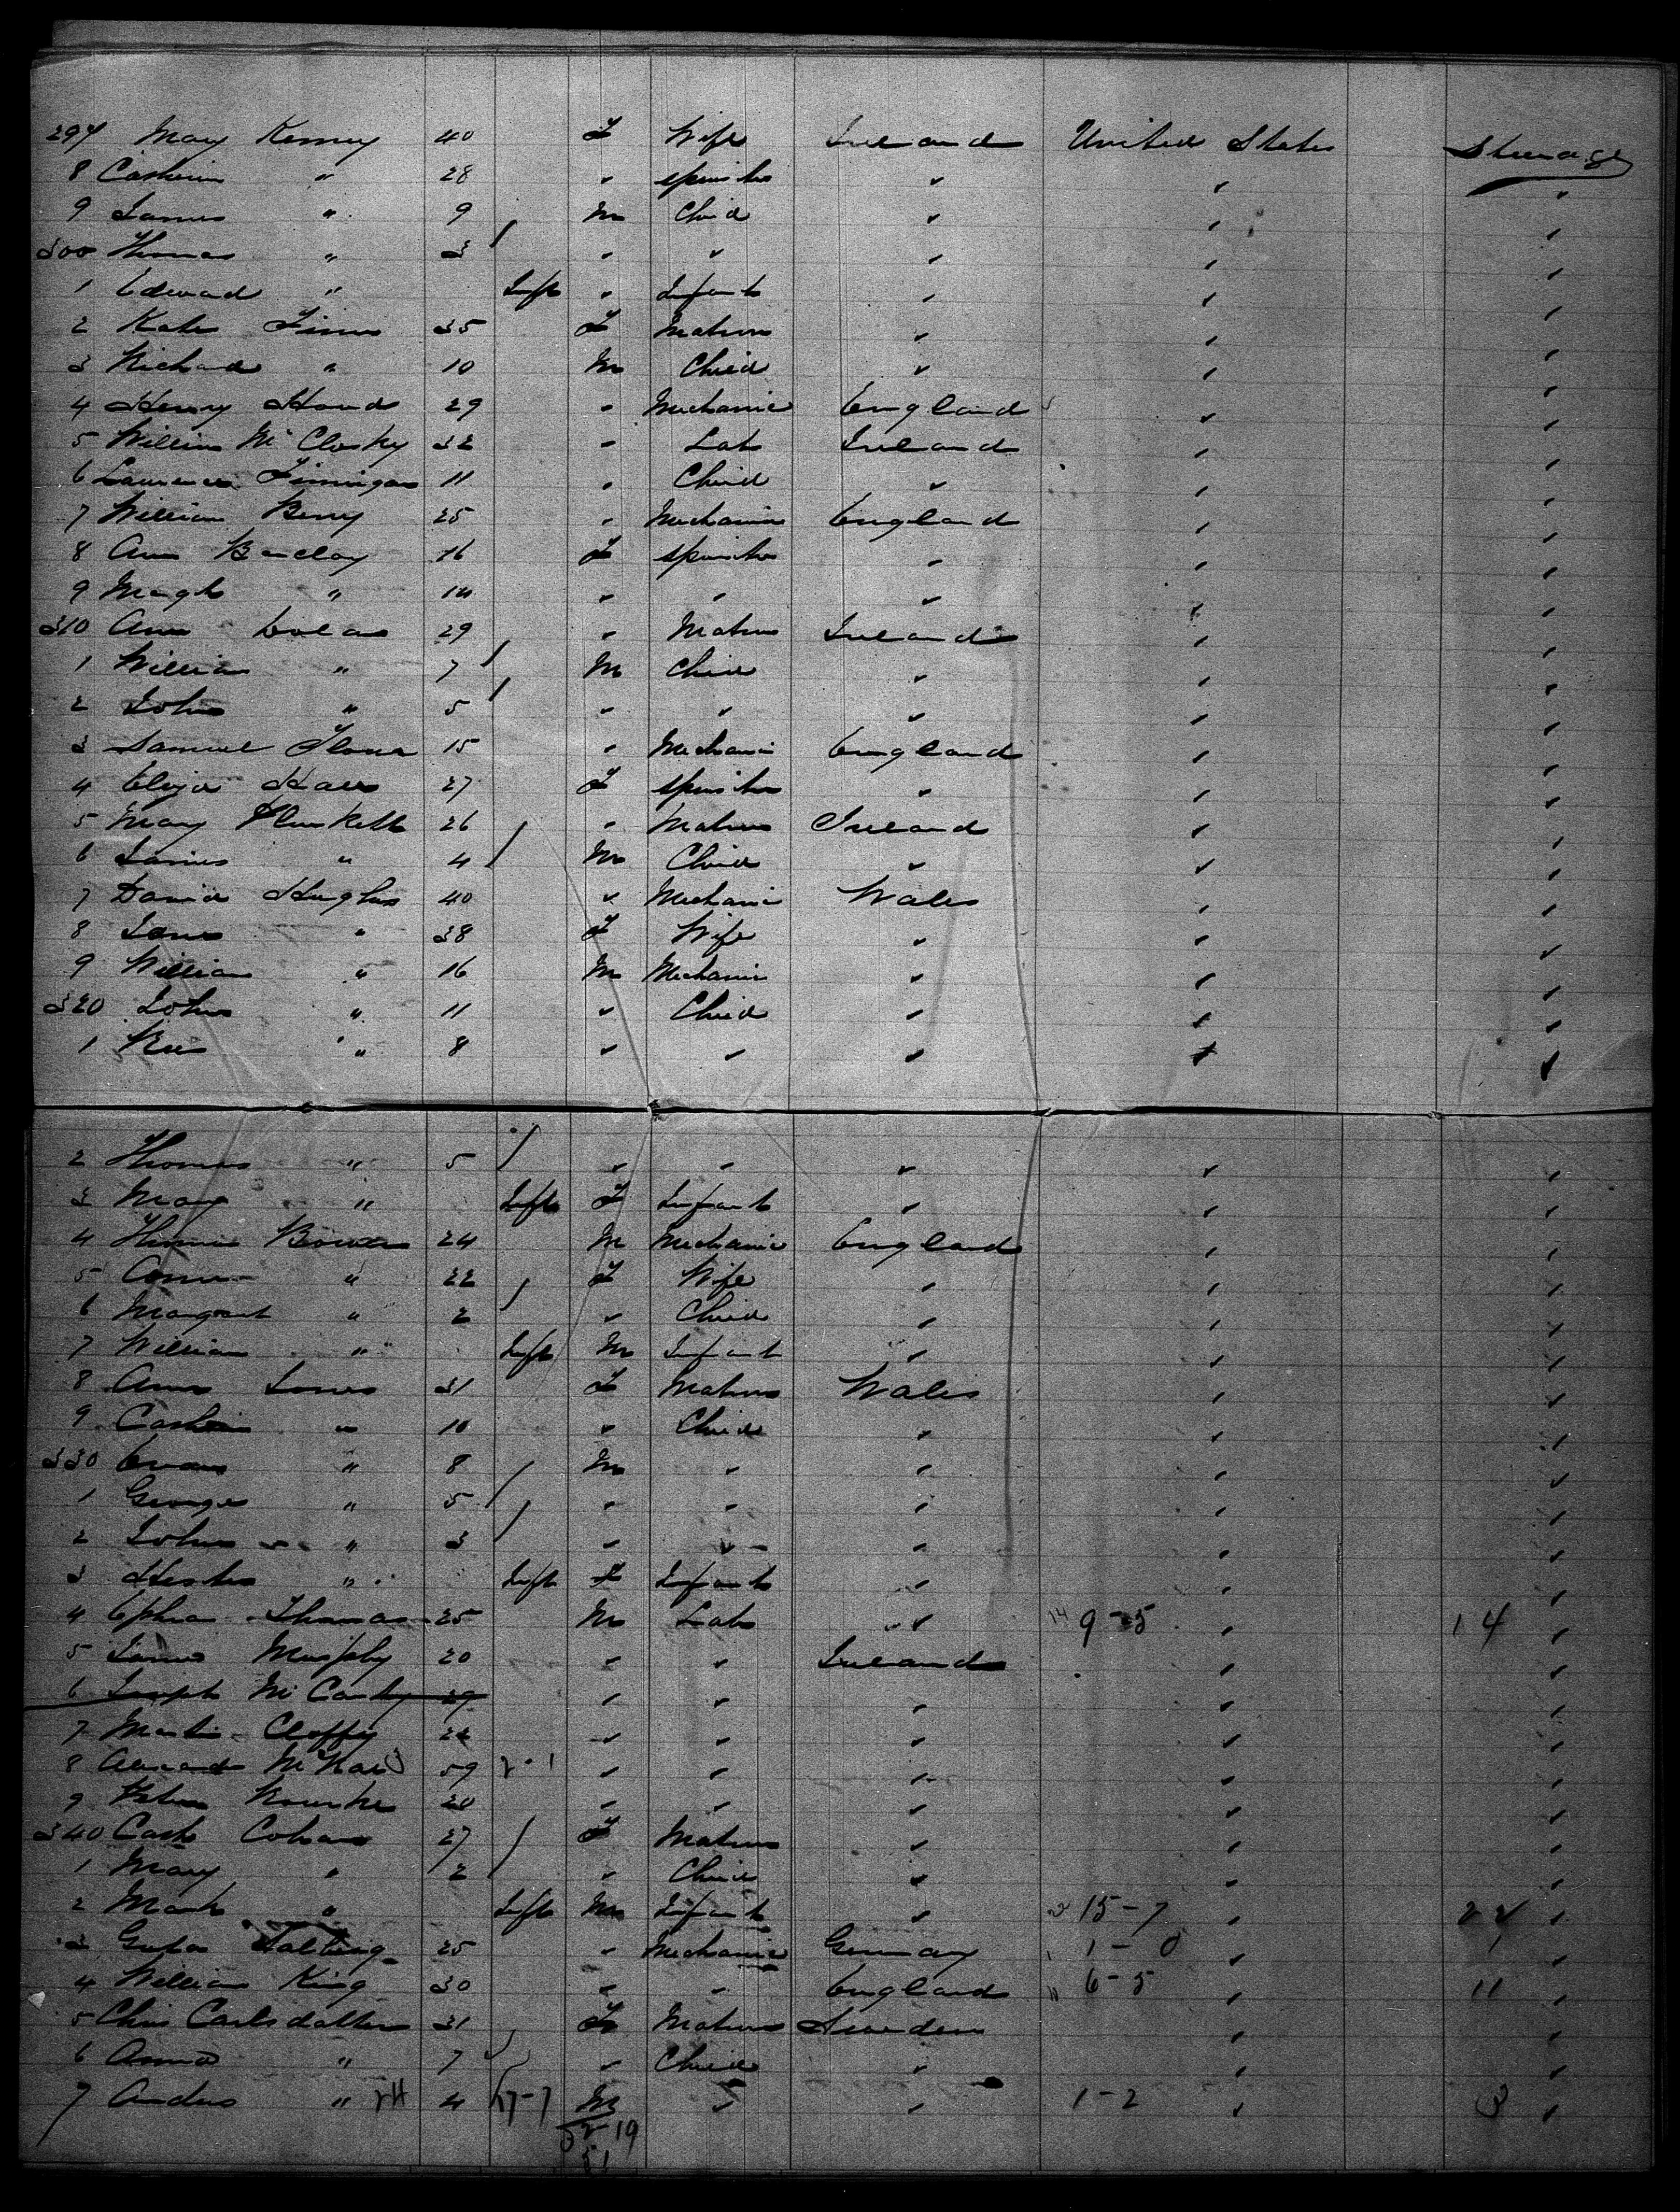 297 Mary Kenny 40 F Wife Ireland United States Steerage
8 Catherin " 28 " Spinster " " "
9 James " 9 M Child " " "
300 Thomas " 3 " " " " "
1 Edward " Inft " Infant " " "
2 Kate Finn 35 F Matron " " "
3 Richard " 10 M Child " " "
4 Henry Hand 29 " Mechanic England " "
5 William McClosky 32 " Lab Ireland " "
6 Lawrence Finnigan 11 " Child " " "
7 William Berry 25 " Mechanic England " "
8 Ann Barclay 16 F Spinster " " "
9 Margt " 14 " " " " "
310 Ann 29 " Matron Ireland " "
1 William " 7 M Child " " "
2 John " 5 " " " " "
3 Samuel 15 " Mechanic England " "
4 Eliza 27 F Spinster " " "
5 Mary Plunkett 26 " Matron Ireland " "
6 James " 4 M Child " " "
7 David Hughes 40 " Mechanic Wales " "
8 Jane " 38 F Wife " " "
9 William " 16 M Mechanic " " "
320 John " 11 " Child " " "
1 " 8 " " " " "
2 Thomas " 5 " " " " "
3 Mary " Inft F Infant " " "
4 Thomas Bowen 24 M Mechanic England " "
5 " 22 F Wife " " "
6 Margaret " 2 " Child " " "
7 William " Inft M Infant " " "
8 Ann Jones 31 F Matron Wales " "
9 " 10 " Child " " "
330 Evan " 8 M " " " "
1 George " 5 " " " " "
2 John " 3 " " " " "
3 Hester " Inft F Infant " " "
4 Ephra Thomas 25 M Lab " 14 9-5 " 14 "
5 James Murphy 20 " " Ireland " "
6 Joseph McCarthy 29 " " " " "
7 Martin Claffy 22 " " " " "
8 59 " " " " "
9 Rourke 20 " " " " "
340 Cath 27 F Matron " " "
1 Mary " 2 " Child " " "
2 Mark " Inft M Infant " 15-7 " 22 "
3 25 " Mechanic Germany 1 1-0 " 1 "
4 William King 30 " " England 11 6-5 " 11 "
5 Chris Carlsdatter 31 F Matron Sweden " "
6 Anna " 7 " Child " " "
7 Andus " 4 17-7 M " " 1-2 " 3 "
19
51